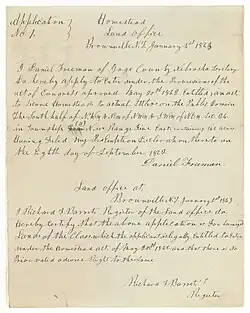 Application } Homestead
No 1. } Land Office
Brownville N.T. January 1st 1863
I Daniel Freeman of Gage County Nebraska Territory
Do hereby apply to Enter under the Provisions of the
act of Congress aproved May 20th 1862 Entitled an act
to Secure Homesteads to actual Settlers on the Public Domain
The South half of N.W 1/4 & N.W of N.W 1/4 & S.W of N.E 1/4 Sec. 26
in Township Four (4) N in Range Five East containing 160 acres
Having Filed my Pre Emption Declaration thereto on
the Eighth day of September 1862
Daniel Freeman
Land office at
Brownville N.T. January 1st 1863
I Richard F Barret, Register of the Land office do
Hereby certify that the above application is for Surveyed
Lands of the Class which the applicant is legally Entitled to Enter
under the Homestead act of May 20th 1862 and that there is no
Prior valid adverse Right to the Same
Richard F Barret
Register